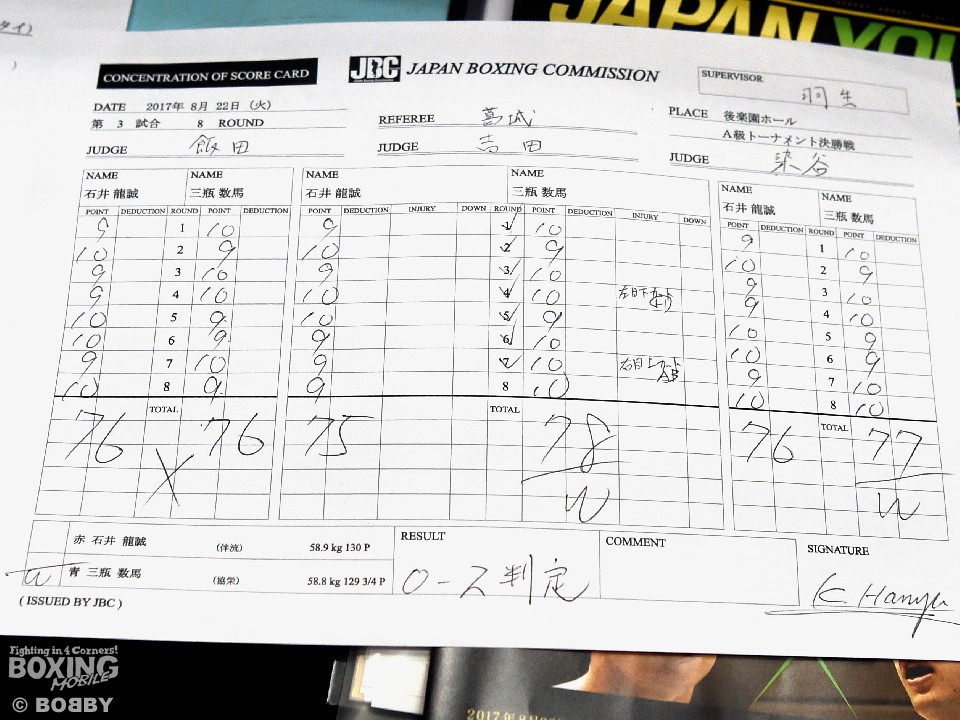 タイ)
)
JAPAN YOU
CONCENTRATION OF SCORE CARD
JBC JAPAN BOXING COMMISSION
SUPERVISOR 羽生
DATE 2017年 8月 22日 (火)
第 3 試合 8 ROUND
REFEREE 葛城
PLACE 後楽園ホール
A級トーナメント決勝戦
JUDGE 飯田
JUDGE 吉田
JUDGE 染谷
NAME NAME NAME NAME NAME NAME
石井 龍誠 三瓶 数馬 石井 龍誠 三瓶 数馬 石井 龍誠 三瓶 数馬
POINT DEDUCTION ROUND POINT DEDUCTION POINT DEDUCTION INJURY DOWN ROUND POINT DEDUCTION INJURY DOWN POINT DEDUCTION ROUND POINT DEDUCTION
9 1 10 9 1 10 9 1 10
10 2 9 10 2 9 10 2 9
9 3 10 9 3 10 9 3 10
9 4 10 10 4 10 左目下カット 9 4 10
10 5 9 10 5 9 10 5 9
10 6 9 9 6 10 10 6 9
9 7 10 9 7 10 右目上カット 9 7 10
10 8 9 9 8 10 10 8 10
TOTAL TOTAL TOTAL
76 76 75 78 76 77
X W W
赤 石井 龍誠 (伴流) 58.9 kg 130 P
W 青 三瓶 数馬 (協栄) 58.8 kg 129 3/4 P
RESULT
0-2 判定
COMMENT
SIGNATURE
K Hanyu
( ISSUED BY JBC )
Fighting in 4 Corners!
BOXING
MOBILE
© BOBBY